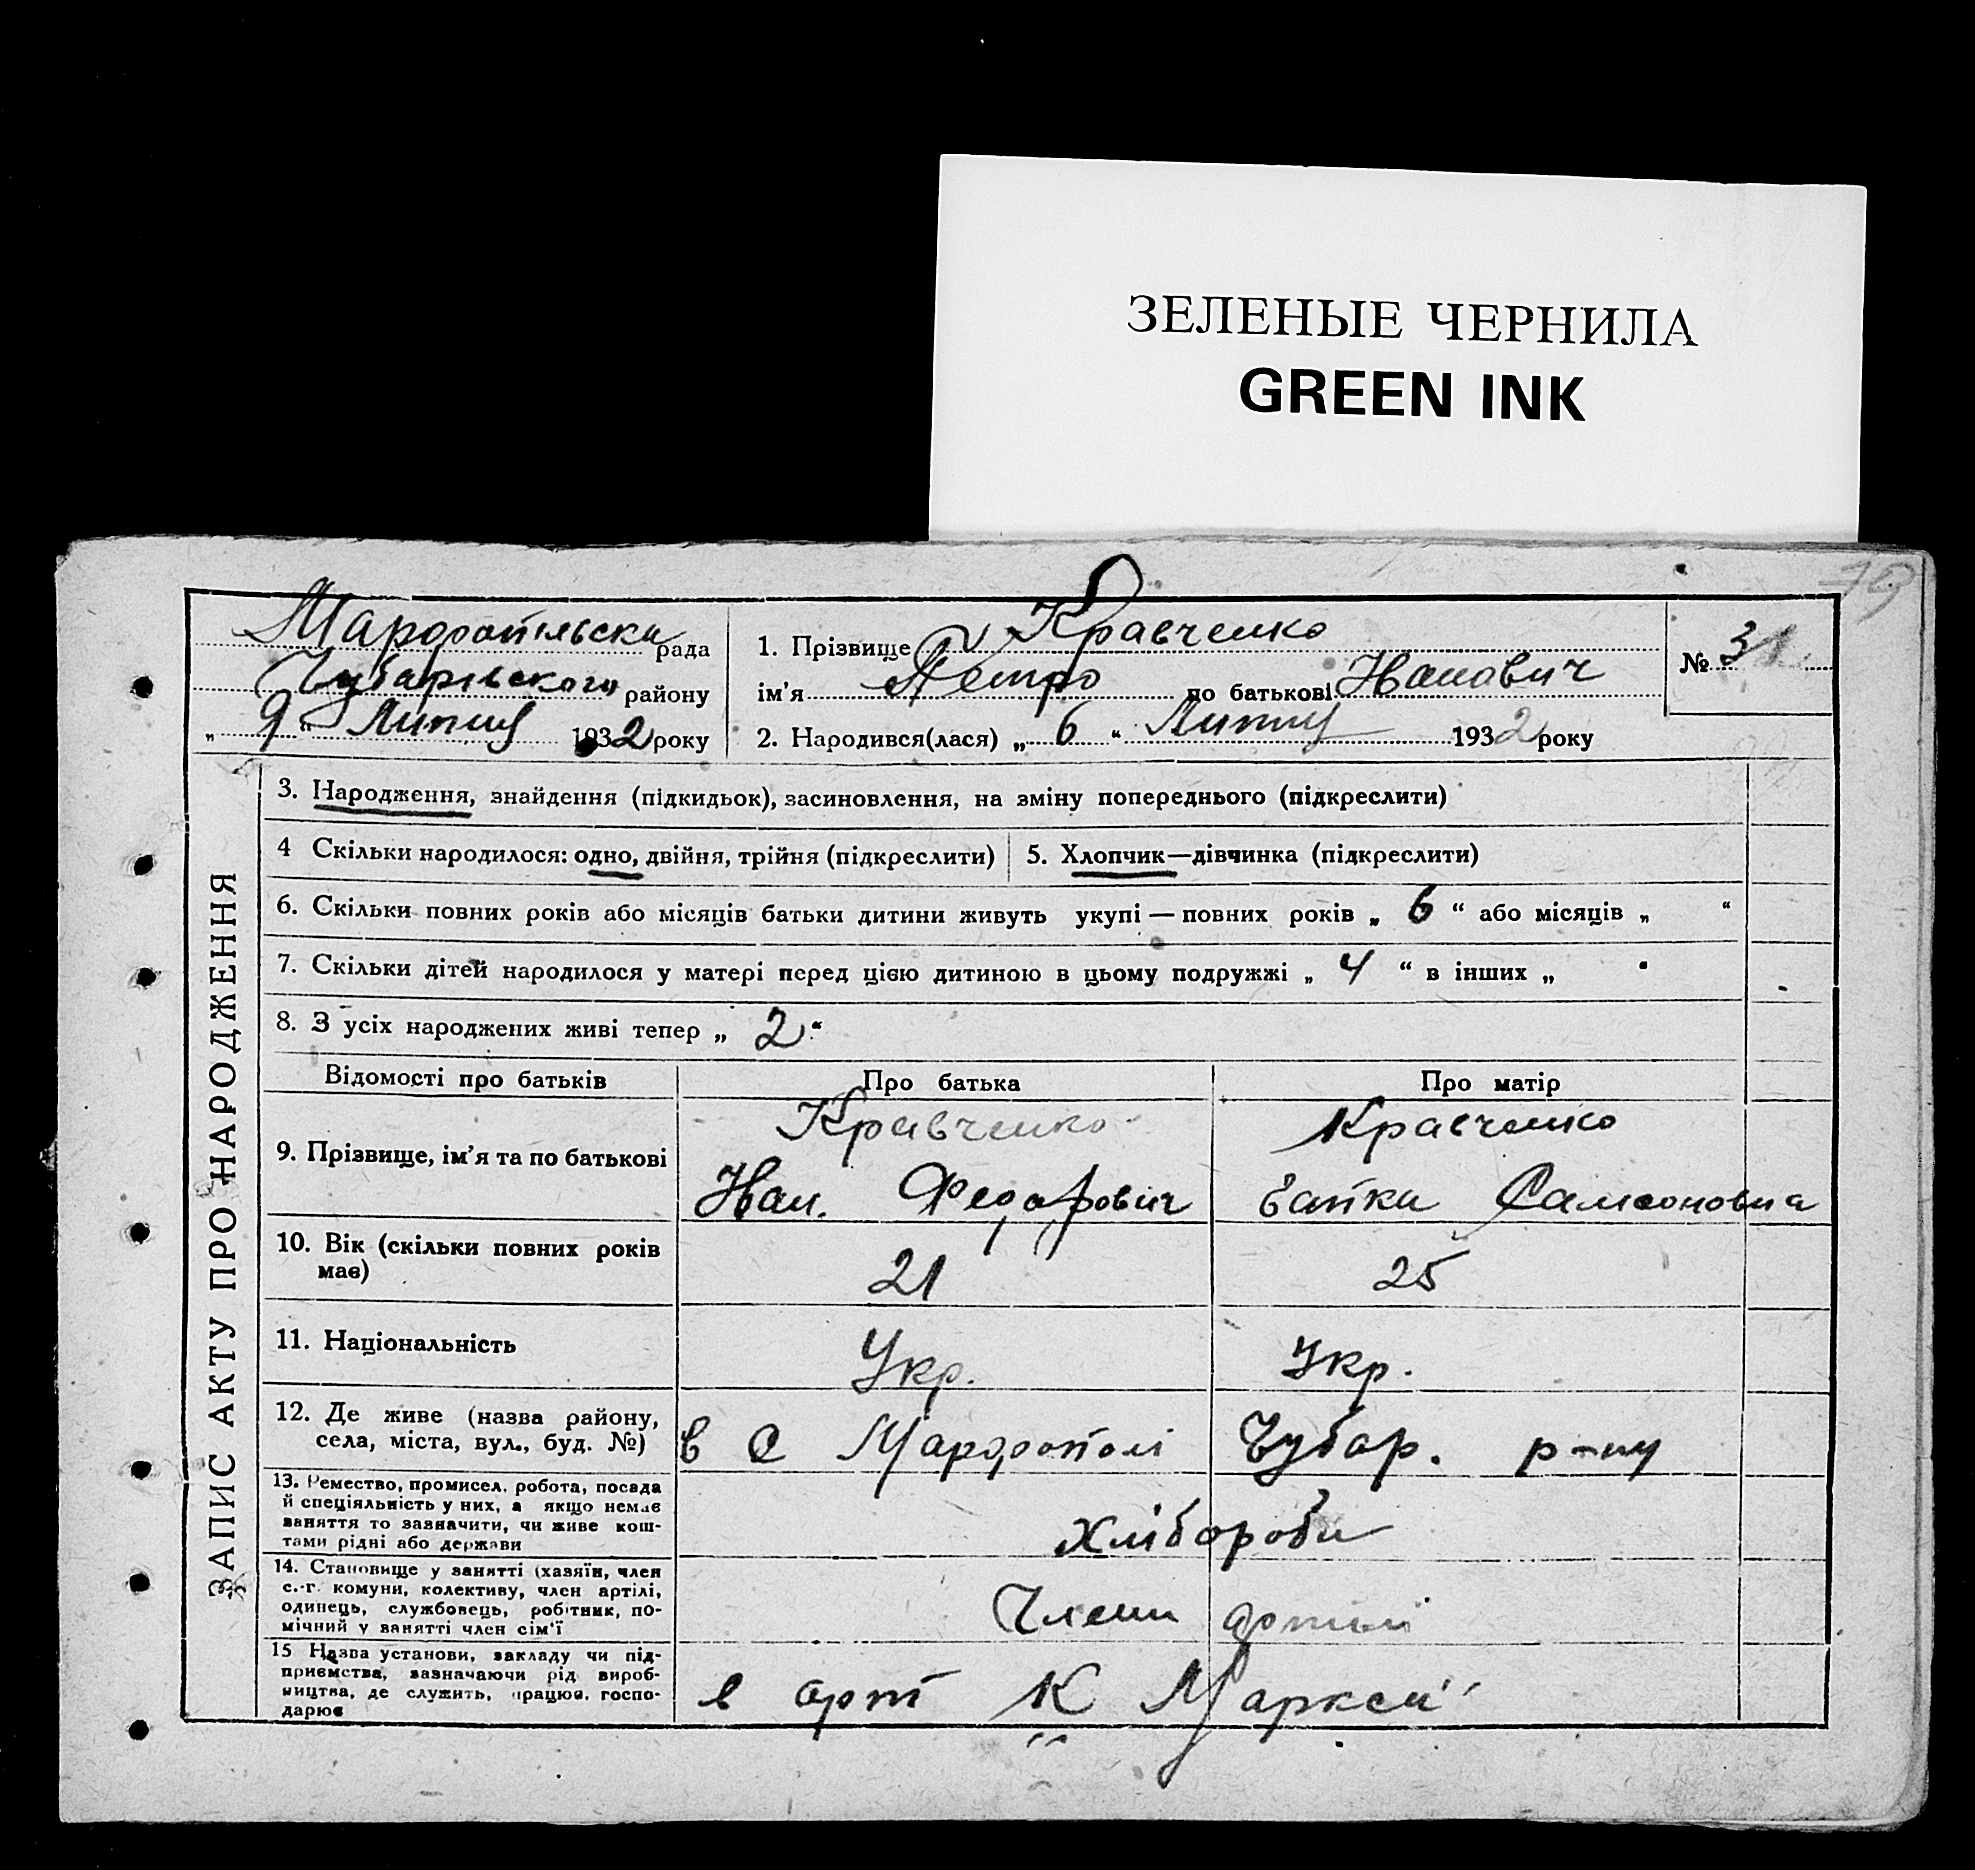 ЗЕЛЕНЫЕ ЧЕРНИЛА
GREEN INK
79
Марфопільська рада
Чубарівського району
„ 9 “ Липня 1932 року
1. Прізвище Кравченко
ім'я Петро по батькові Иванович
2. Народився(лася) „ 6 “ Липня 1932 року
№ 31
ЗАПИС АКТУ ПРО НАРОДЖЕННЯ
3. Народження, знайдення (підкидьок), засиновлення, на зміну попереднього (підкреслити)
4 Скільки народилося: одно, двійня, трійня (підкреслити)
5. Хлопчик—дівчинка (підкреслити)
6. Скільки повних років або місяців батьки дитини живуть укупі — повних років „ 6 “ або місяців „ “
7. Скільки дітей народилося у матері перед цією дитиною в цьому подружжі „ 4 “ в інших „ “
8. З усіх народжених живі тепер „ 2 “
Відомості про батьків Про батька Про матір
9. Прізвище, ім'я та по батькові
Кравченко
Иван. Федорович
Кравченко
Самсоновна
10. Вік (скільки повних років має)
21
25
11. Національність
Укр.
Укр.
12. Де живе (назва району,
села, міста, вул., буд. №)
в с Марфополі Чубар. р-ну
13. Ремество, промисел, робота, посада
й спеціяльність у них, а якщо немає
заняття то зазначити, чи живе кош-
тами рідні або держави
Хлібороби
14. Становище у занятті (хазяїн, член
с.-г. комуни, колективу, член артілі,
одинець, службовець, робітник, по-
мічний у занятті член сім'ї
Члени артілі
15 Назва установи, закладу чи під-
приємства, зазначаючи рід вироб-
ництва, де служить, працює, госпо-
дарює
в арт К Маркса